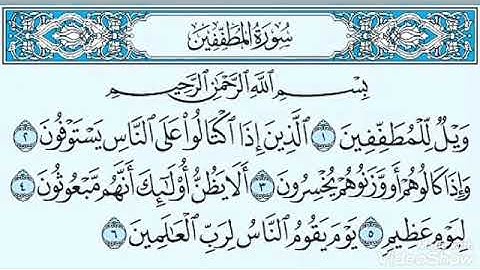 سُورَةُ الْمُطَفِّفِينَ
بِسْمِ اللَّهِ الرَّحْمَٰنِ الرَّحِيمِ
وَيْلٌ لِّلْمُطَفِّفِينَ ١ الَّذِينَ إِذَا اكْتَالُوا عَلَى النَّاسِ يَسْتَوْفُونَ ٢
وَإِذَا كَالُوهُمْ أَو وَّزَنُوهُمْ يُخْسِرُونَ ٣ أَلَا يَظُنُّ أُولَٰئِكَ أَنَّهُم مَّبْعُوثُونَ ٤
لِيَوْمٍ عَظِيمٍ ٥ يَوْمَ يَقُومُ النَّاسُ لِرَبِّ الْعَالَمِينَ ٦
VideoShow